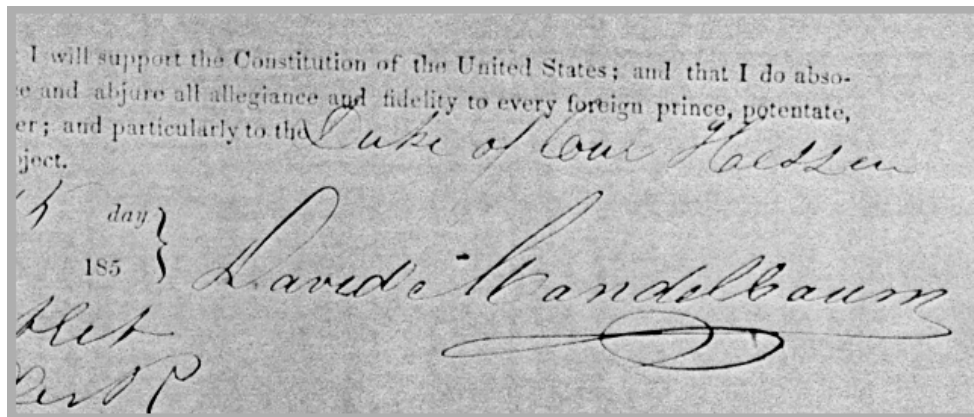 I will support the Constitution of the United States; and that I do abso-
and abjure all allegiance and fidelity to every foreign prince, potentate,
er; and particularly to the Duke of Cur Hessen
ject.
day
185
David Mandelbaum